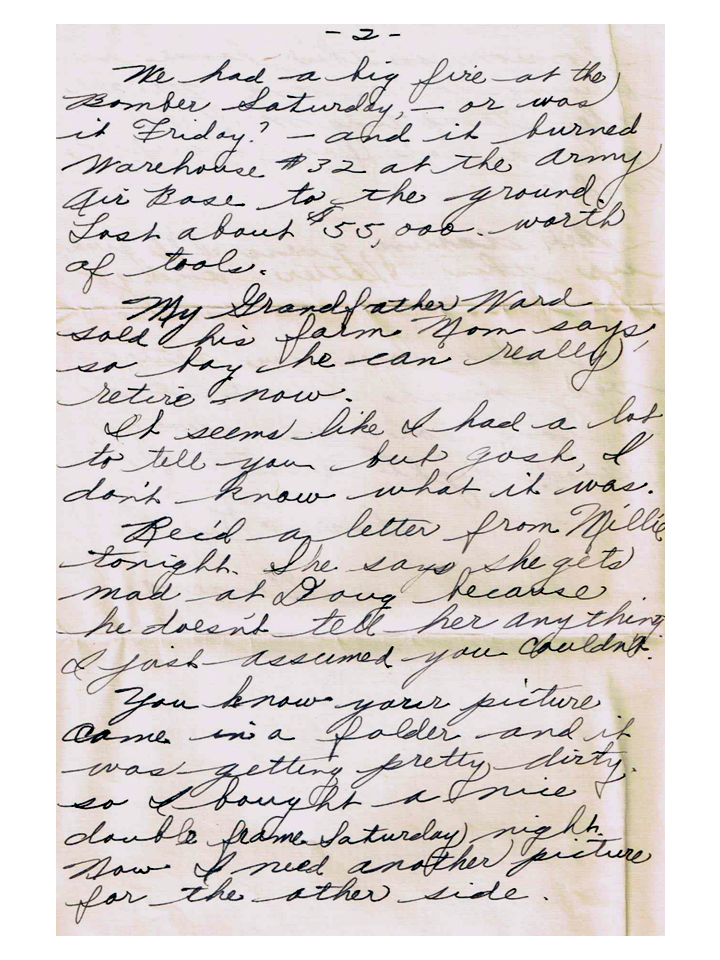 -2-
We had a big fire at the
Bomber Saturday, - or was
it Friday? - and it burned
Warehouse #32 at the Army
Air Base to the ground.
Lost about $55,000. worth
of tools.
My Grandfather Ward
sold his farm Mom says,
so boy he can really
retire now.
It seems like I had a lot
to tell you but gosh, I
don't know what it was.
Rec'd a letter from Millie
tonight. She says she gets
mad at Doug because
he doesn't tell her anything
I just assumed you couldn't.
You know your picture
came in a folder and it
was getting pretty dirty.
so I bought a nice
double frame Saturday night.
Now I need another picture
for the other side.